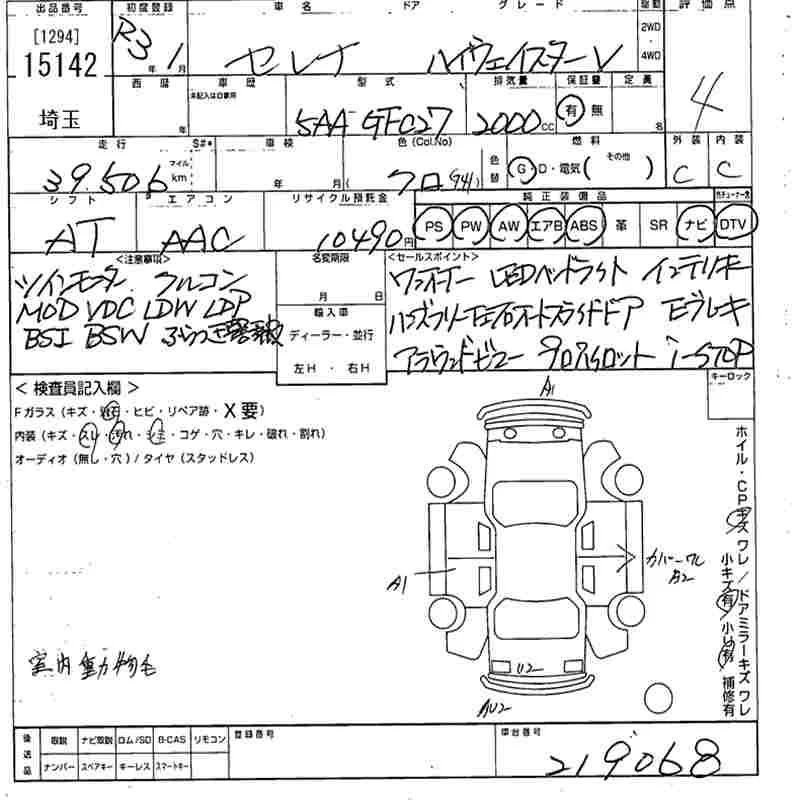 出品番号 初度登録 車名 ドア グレード 駆動 評価点
[1294]
15142
R3年 1月
セレナ ハイウェイスターV
2WD・4WD
4
埼玉
西暦 年 車歴 未記入は自家用 型式 排気量 保証書 定員
5AA-GFC27 2000cc 有 無 名
走行 S#* 車検 色(Col.No) 燃料 外装 内装
39.506 マイル km 年 月( クロ(G41) 色替 G・D・電気( その他 ) C C
シフト エアコン リサイクル預託金 純正装備品
AT AAC 10490円 PS PW AW エアB ABS 革 SR ナビ DTV
<注意事項> 名変期限 <セールスポイント>
ツインモーター フルコン
MOD VDC LDW LDP
BSI BSW ふらつき警報
月 日
輸入車
ディーラー・並行
左H・右H
ワンオーナー LEDヘッドライト インテリキー
ハンズフリー両左右オートスライドドア Eブレーキ
アラウンドビュー プロパイロット i-STOP
キーロック
<検査員記入欄>
Fガラス(キズ・飛石・ヒビ・リペア跡・X要)
内装(キズ・スレ・汚れ・シミ・コゲ・穴・キレ・破れ・割れ)
オーディオ(無し・穴)/タイヤ(スタッドレス)
A1
A1
カバーワレ
A2
U2
AU2
ホイル・CPキズ ワレ/ドアミラーキズ ワレ
小キズ有 小凹有 補修有
室内動物毛
後送品 取説 ナビ取説 ロム/SD B-CAS リモコン 登録番号 車台番号
ナンバー スペアキー キーレス スマートキー
219068